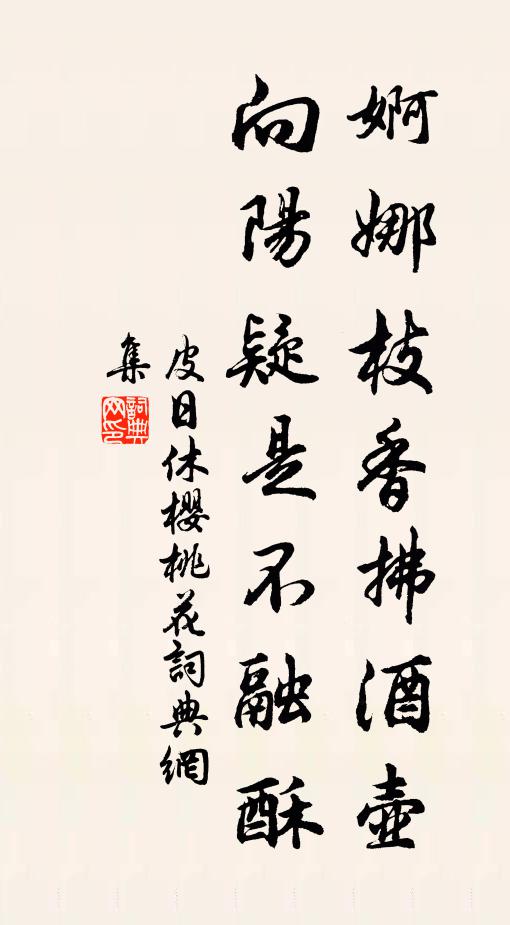 婀娜枝香拂酒壺
向陽疑是不融酥
皮日休櫻桃花詞典網
集
詞典
网印